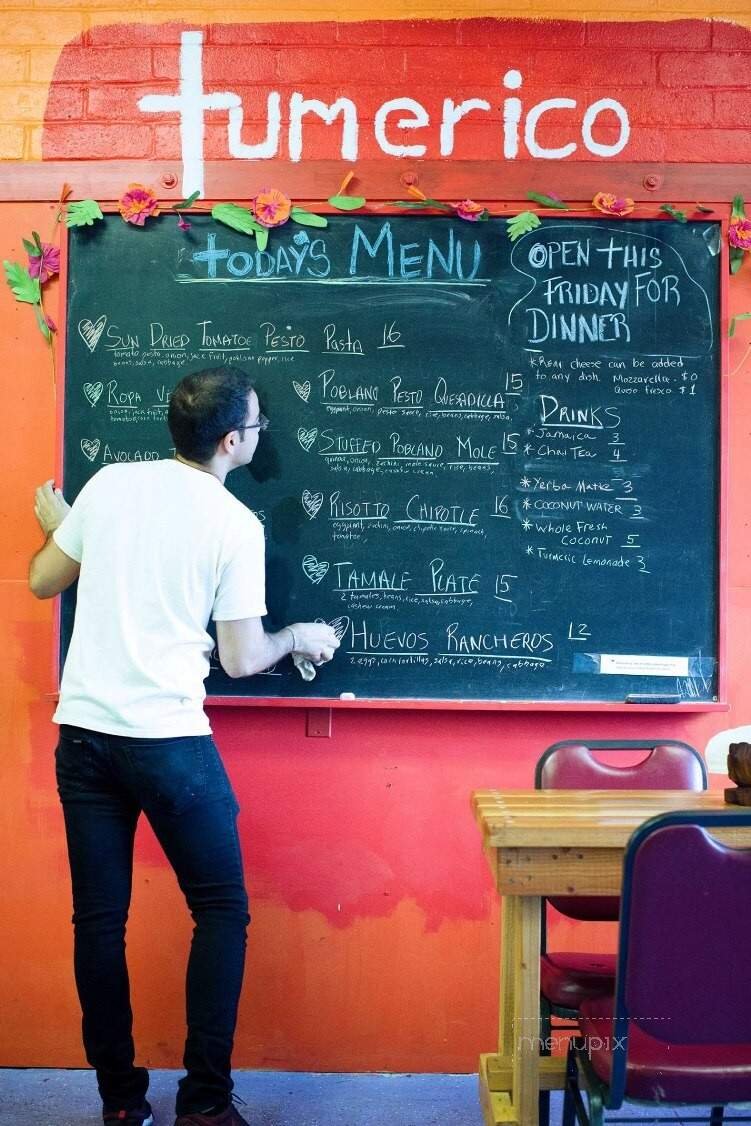 tumerico
TODAY'S MENU
OPEN THIS
FRIDAY FOR
DINNER
SUN DRIED TOMATOE PESTO PASTA 16
tomato pesto, onion, jack fruit, poblano pepper, rice
beans, salsa, cabbage
ROPA
onion, jack fruit,
AVOCADO
POBLANO PESTO QUESADILLA 15
eggplant, onion, pesto sauce, rice, beans, cabbage, salsa,
STUFFED POBLANO MOLE 15
quinoa, onion, zuchini, mole sauce, rice, beans,
salsa, cabbage, cashew cream
RISOTTO CHIPOTLE 16
eggplant, zuchini, onion, chipotle sauce, spinach,
tomatoe
TAMALE PLATE 15
2 tamales, beans, rice, salsa, cabbage,
cashew cream
HUEVOS RANCHEROS 12
2 eggs, corn tortillas, salsa, rice, beans, cabbage
*Real cheese can be added
to any dish. Mozzarella. $0
Queso fresco $1
DRINKS
* Jamaica 3
* Chai Tea 4
* Yerba Mate 3
* COCONUT WATER 3
* Whole Fresh
COCONUT 5
* Turmeric Lemonade 3
menupix